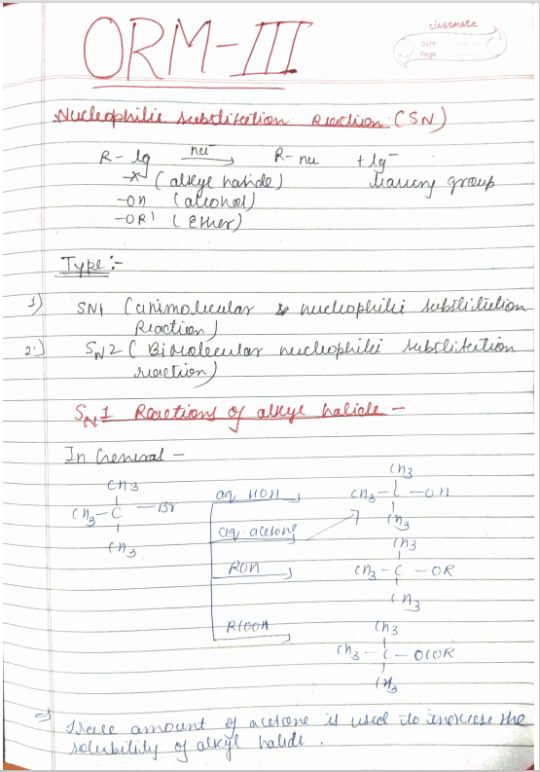 classmate
Date
Page
ORM-III
Nucleophilic substitution Reaction (SN)
R - lg nu⁻ → R - nu + lg⁻
-X (alkyl halide) leaving group
-OH (alcohol)
-OR' (Ether)
Type :-
1) SN1 (unimolecular nucleophilic substitution
Reaction)
2.) SN2 (Bimolecular nucleophilic substitution
reaction)
SN1 Reactions of alkyl halide -
In General -
CH3 CH3
CH3 - C - Br aq HOH CH3 - C - OH
CH3 CH3
aq acetone
CH3
ROH CH3 - C - OR
CH3
RCOOH CH3
CH3 - C - OCOR
CH3
Trace amount of acetone is used to increase the
solubility of alkyl halide.